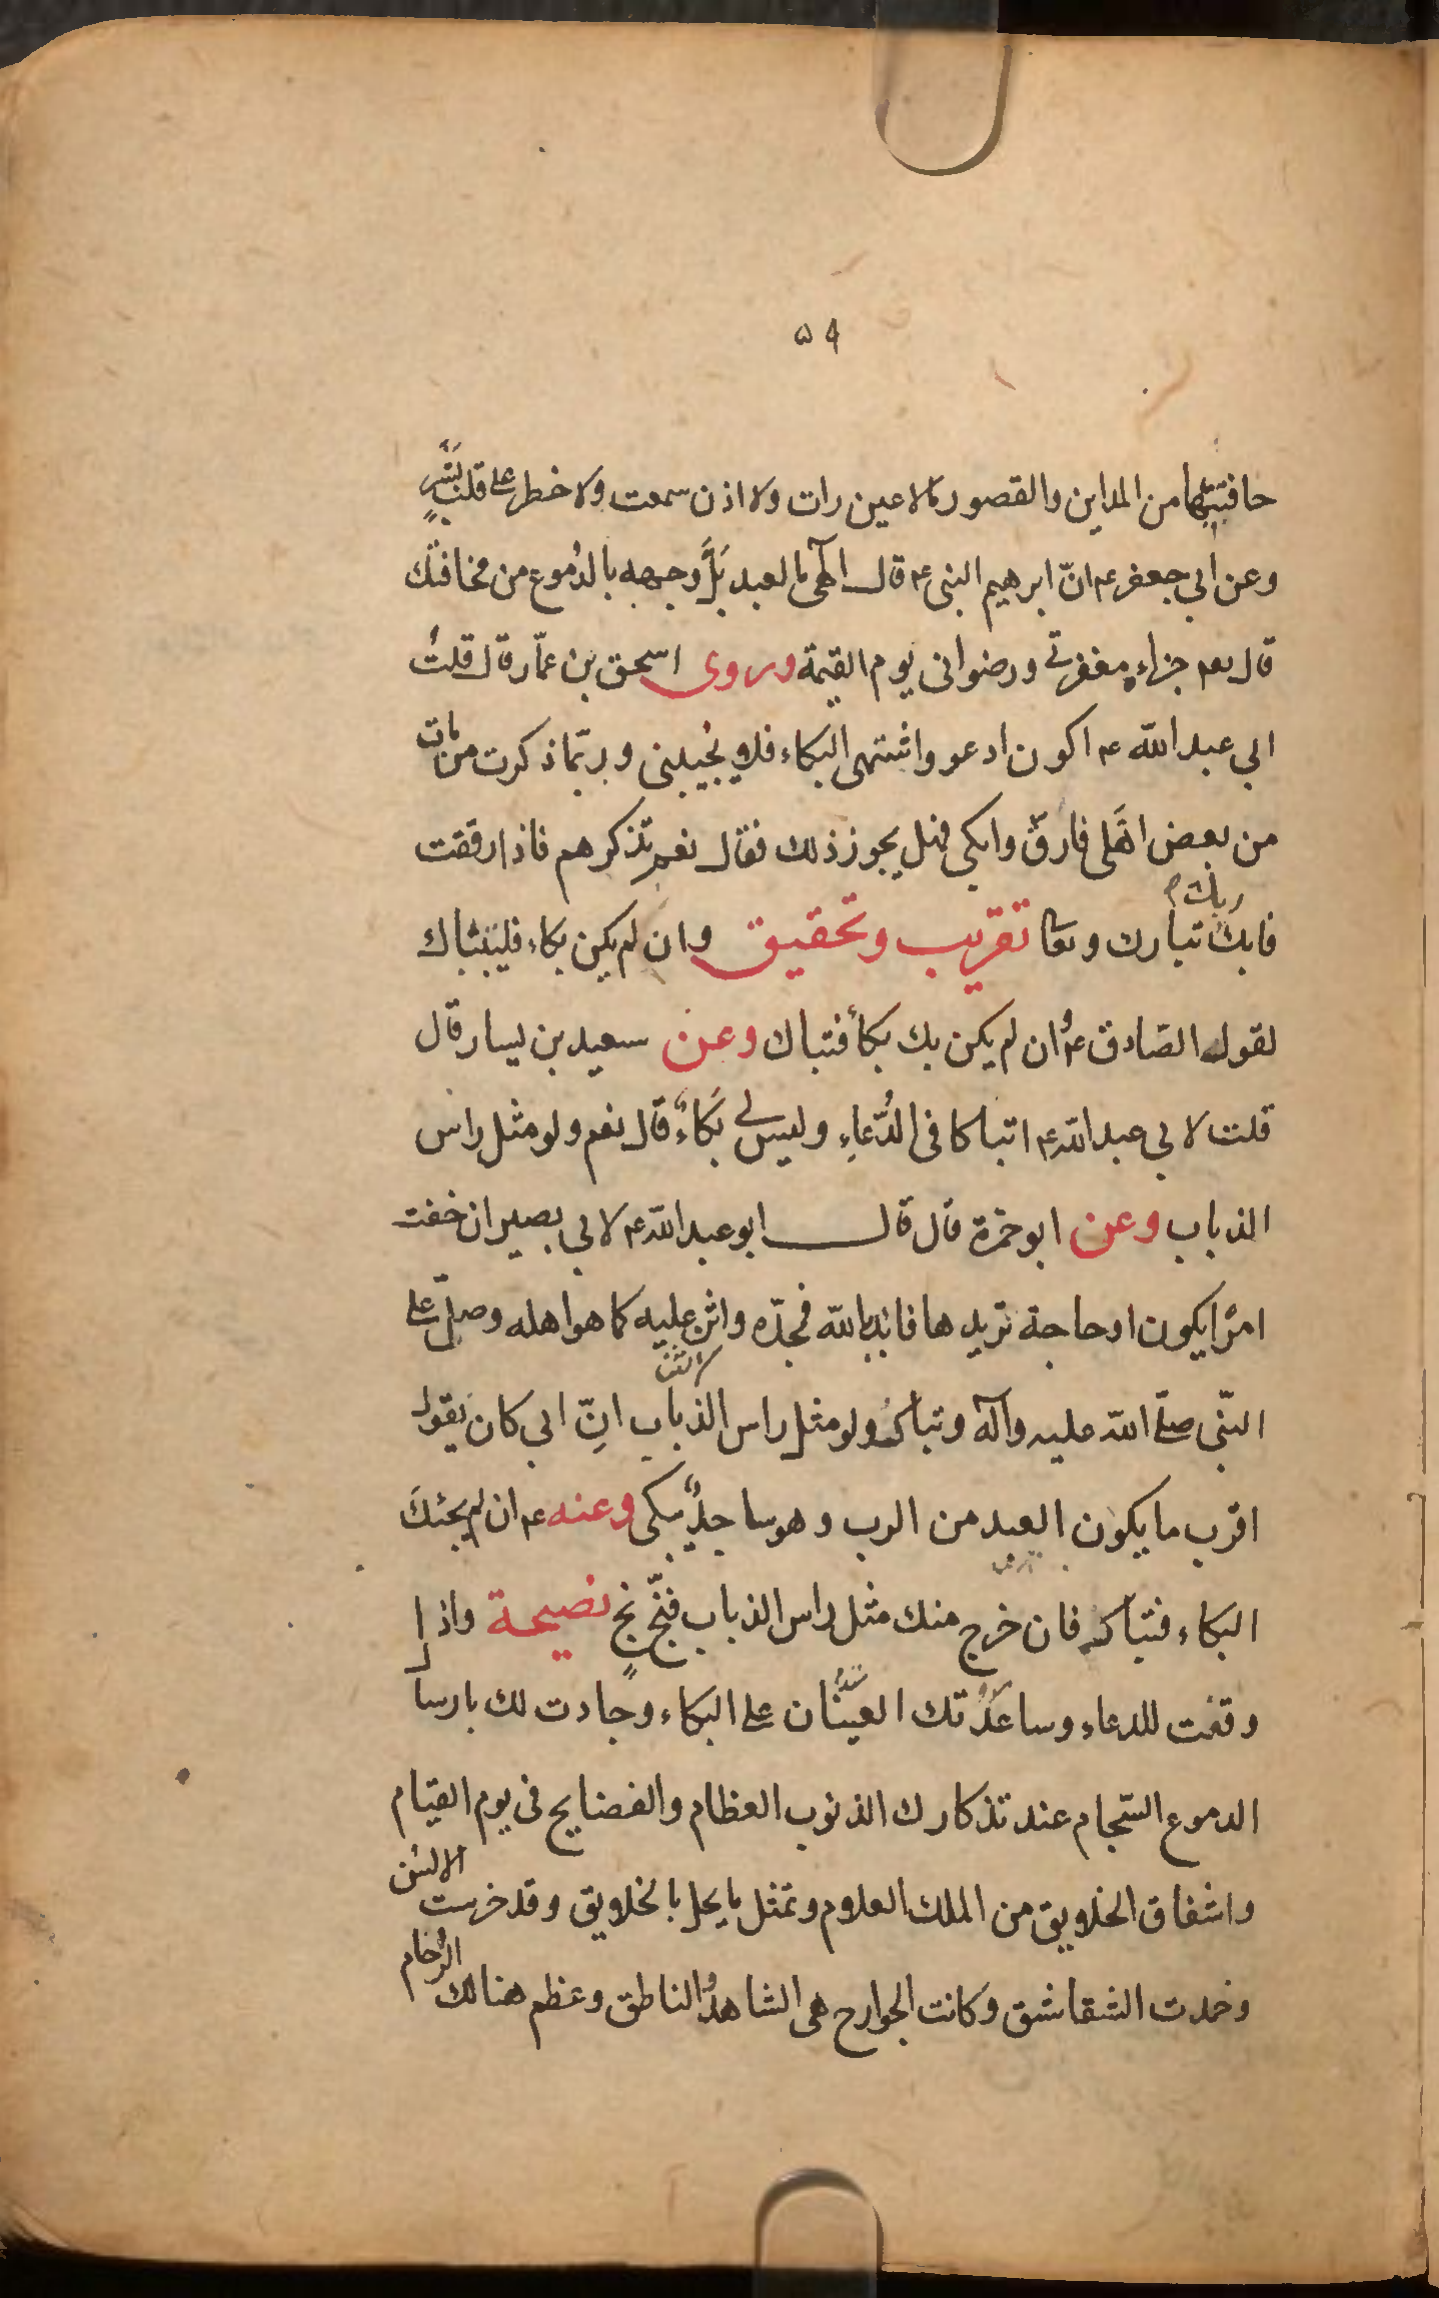 ٥٩
حافتيها من المداين والقصور ما لا عين رات ولا اذن سمعت ولا خطر على قلب بشرٍ
وعن ابي جعفر ع انّ ابرهيم النبى ع قال الٓهى ما لعبد بَلَّ وجهه بالدُموع من مخافتك
قال تعم جزاءه مغفرتى ورضوانى يوم القيمة وروى اسحق بن عمّار قال قلتُ
لابي عبد الله ع اكون ادعو واشتهى البكاء فلا يجيبنى وربّما ذكرت من مات
من بعض اهلى فارقّ وابكى فهل يجوز ذلك فقال نعم تذكرهم فاذا رققت
فابك ربك تبارك وتعا تقريب وتحقيق وان لم يكن بكاء فليتباك
لقول الصّادق ع وان لم يكن بك بكأ فتباك وعن سعيد بن يسار قال
قلت لابي عبد الله ع اتباكا فى الدُّعاءِ وليس لى بَكاءٌ قال نعم ولو مثل راس
الذباب وعن ابو حمزة قال قال ابو عبد الله ع لابي بصير ان خفت
امرًا يكون او حاجة تريدها فابدا بالله فمجدّه واثن عليه كما هو اهله وصلّ على
النّبى صلّى الله عليه وآله وتباك ولو مثل راس الذباب انّ ابي كان يقول
اقرب ما يكون العبد من الرب وهو ساجدٌ يبكى وعنه ع ان لم يجئكَ
البكاء فتباك فان خرج منك مثل راس الذباب فبخّ بخ نصيحة واذا
وقفت للدعاء وساعدتك العينان على البكاء وجادت لك بارسا
الدموع السّجام عند تذكارك الذنوب العظام والفضايح فى يوم القيام
واشفاق الخلايق من الملك العلام وتمثل ما يحل بالخلايق وقد خرست الالسن
وخمدت الشقاشق وكانت الجوارح هى الشاهدُ والناطق وعظم هنالك الزحام